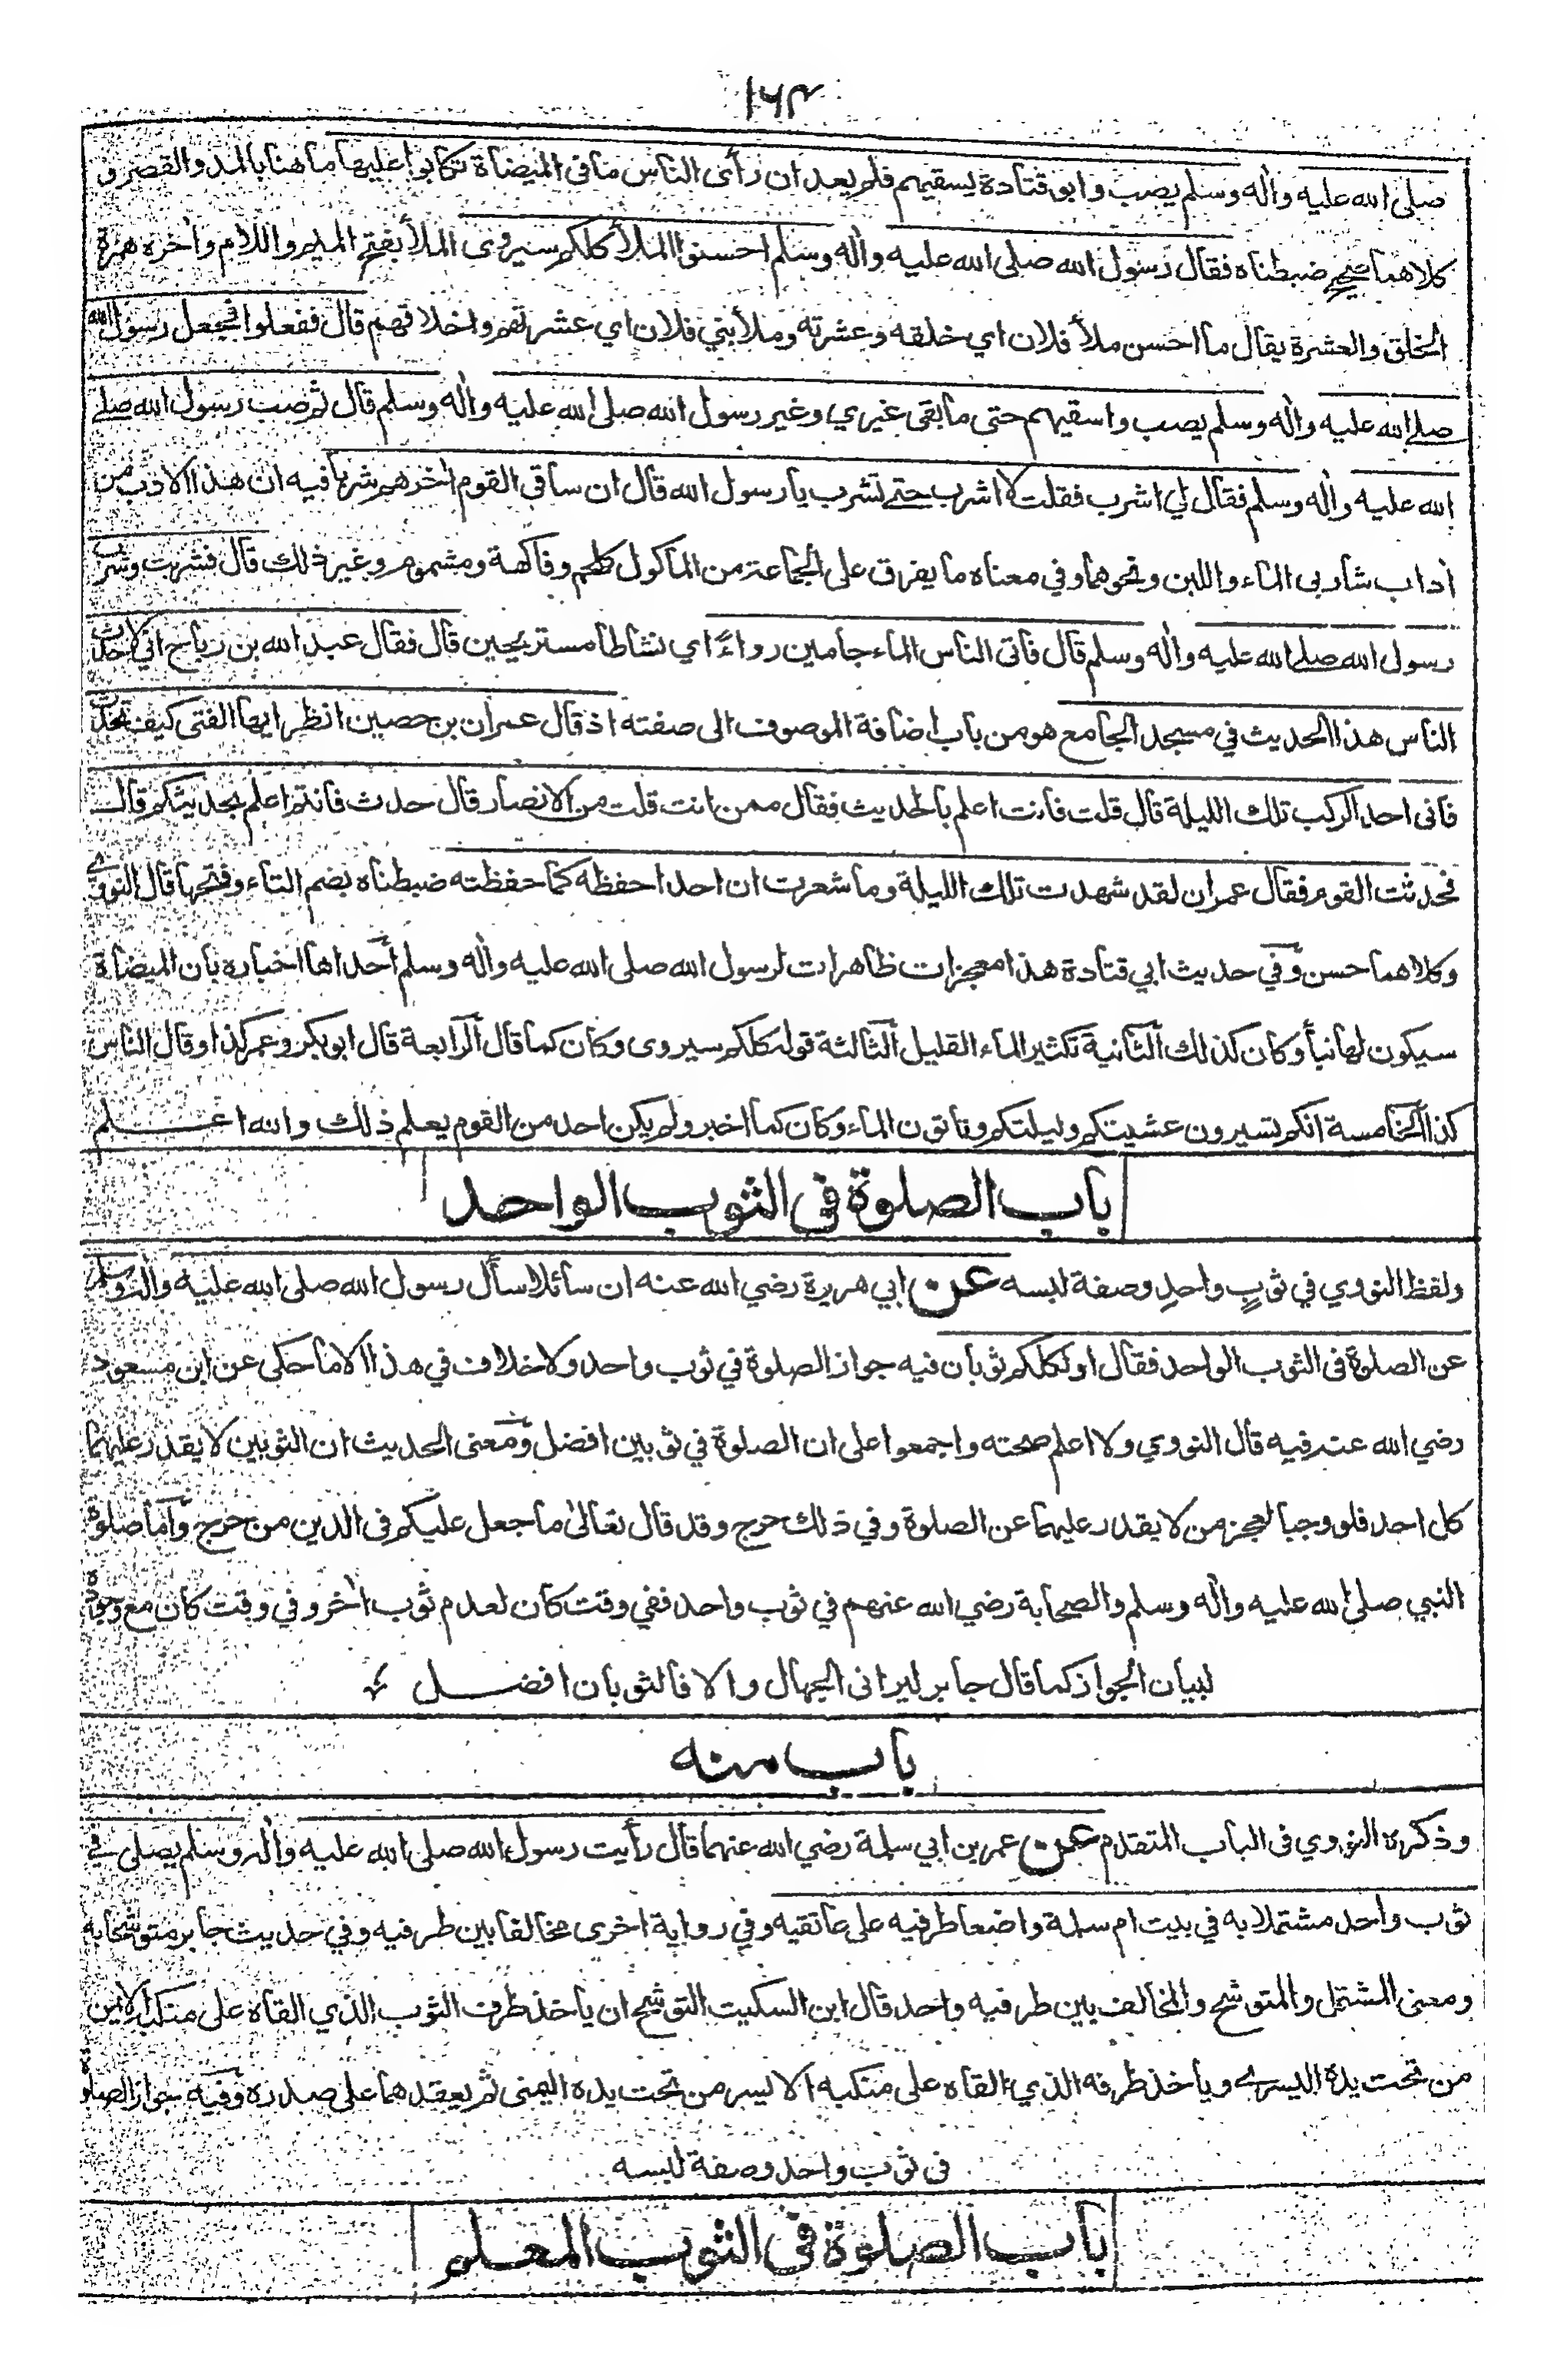 ١٦٣
صلى الله عليه واٰله وسلم يصب وابو قتادة يسقيهم فلم يعد ان رأى الناس ما فى الميضاة تكابوا عليها ما هنا بالمد والقصر و
كلاهما صحيح ضبطناه فقال رسول الله صلى الله عليه واٰله وسلم احسنوا الملأ كلكم سيروى الملأ بفتح الميم واللام واٰخره همزة
الخلق والعشرة يقال ما احسن ملأ فلان اي خلقه وعشرته وملأ بني فلان اي عشرتهم واخلاقهم قال ففعلوا فجعل رسول الله
صلے الله عليه واٰله وسلم يصب واسقيهم حتى ما بقى غيري وغير رسول الله صلى الله عليه واٰله وسلم قال ثم صب رسول الله صلے
الله عليه واٰله وسلم فقال لي اشرب فقلت لا اشرب حتے تشرب يا رسول الله قال ان ساقى القوم اٰخرهم شربا فيه ان هذا الادب من
اٰداب شاربى الماء واللبن ونحوهما وفي معناه ما يفرق على الجماعة من الماكول كلحم وفاكهة ومشموم وغير ذلك قال فشربت وشرب
رسول الله صلے الله عليه واٰله وسلم قال فاتى الناس الماء جامين رواءً اي نشاطا مستريحين قال فقال عبد الله بن رباح اني لاحدث
الناس هذا الحديث في مسجد الجامع هو من باب اضافة الموصوف الى صفته اذ قال عمران بن حصين انظر ايها الفتى كيف تحدث
فانى احد الركب تلك الليلة قال قلت فانت اعلم بالحديث فقال ممن انت قلت من الانصار قال حدث فانتم اعلم بحديثكم قال
فحدثت القوم فقال عمران لقد شهدت تلك الليلة وما شعرت ان احدا حفظه كما حفظته ضبطناه بضم التاء وفتحها قال النووي
وكلاهما حسن وفي حديث ابي قتادة هذا معجزات ظاهرات لرسول الله صلى الله عليه واٰله وسلم احداها اخباره بان الميضاة
سيكون لها نبأ وكان كذلك الثانية تكثير الماء القليل الثالثة قوله كلكم سيروى وكان كما قال الرابعة قال ابو بكر وعمر كذا وقال الناس
كذا الخامسة انكم تسيرون عشيتكم وليلتكم وتاتون الماء وكان كما اخبر ولم يكن احد من القوم يعلم ذلك والله اعلم
باب الصلوة فى الثوب الواحد
ولفظ النووي في ثوبٍ واحدٍ وصفة لبسه عن ابي هريرة رضي الله عنه ان سائلا سأل رسول الله صلى الله عليه واٰله وسلم
عن الصلوة فى الثوب الواحد فقال اولكلكم ثوبان فيه جواز الصلوة في ثوب واحد ولا خلاف في هذا الا ما حكى عن ابن مسعود
رضي الله عنه فيه قال النووي ولا اعلم صحته واجمعوا على ان الصلوة في ثوبين افضل ومعنى الحديث ان الثوبين لا يقدر عليهما
كل احد فلو وجبا لعجز من لا يقدر عليهما عن الصلوة وفي ذلك حرج وقد قال تعالىٰ ما جعل عليكم فى الدين من حرج واما صلوة
النبي صلى الله عليه واٰله وسلم والصحابة رضي الله عنهم في ثوب واحد ففي وقت كان لعدم ثوب اٰخر وفي وقت كان مع وجوده
لبيان الجواز كما قال جابر ليرانى الجهال والا فالثوبان افضل
باب منه
وذكره النووي فى الباب المتقدم عن عمر بن ابي سلمة رضي الله عنهما قال رأيت رسول الله صلى الله عليه واٰله وسلم يصلى في
ثوب واحد مشتملا به في بيت ام سلمة واضعا طرفيه على عاتقيه وفي رواية اخرى مخالفا بين طرفيه وفي حديث جابر متوشحا به
ومعنى المشتمل والمتوشح والمخالف بين طرفيه واحد قال ابن السكيت التوشح ان ياخذ طرف الثوب الذي القاه على منكبه الايمن
من تحت يده اليسرى وياخذ طرفه الذي القاه على منكبه الايسر من تحت يده اليمنى ثم يعقدهما على صدره وفيه جواز الصلوة
فى ثوب واحد وصفة لبسه
باب الصلوة فى الثوب المعلم